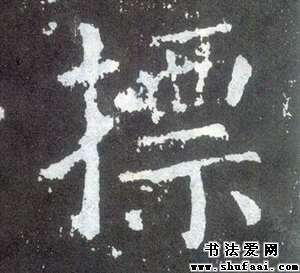 摽
书法爱网
www.shufaai.com